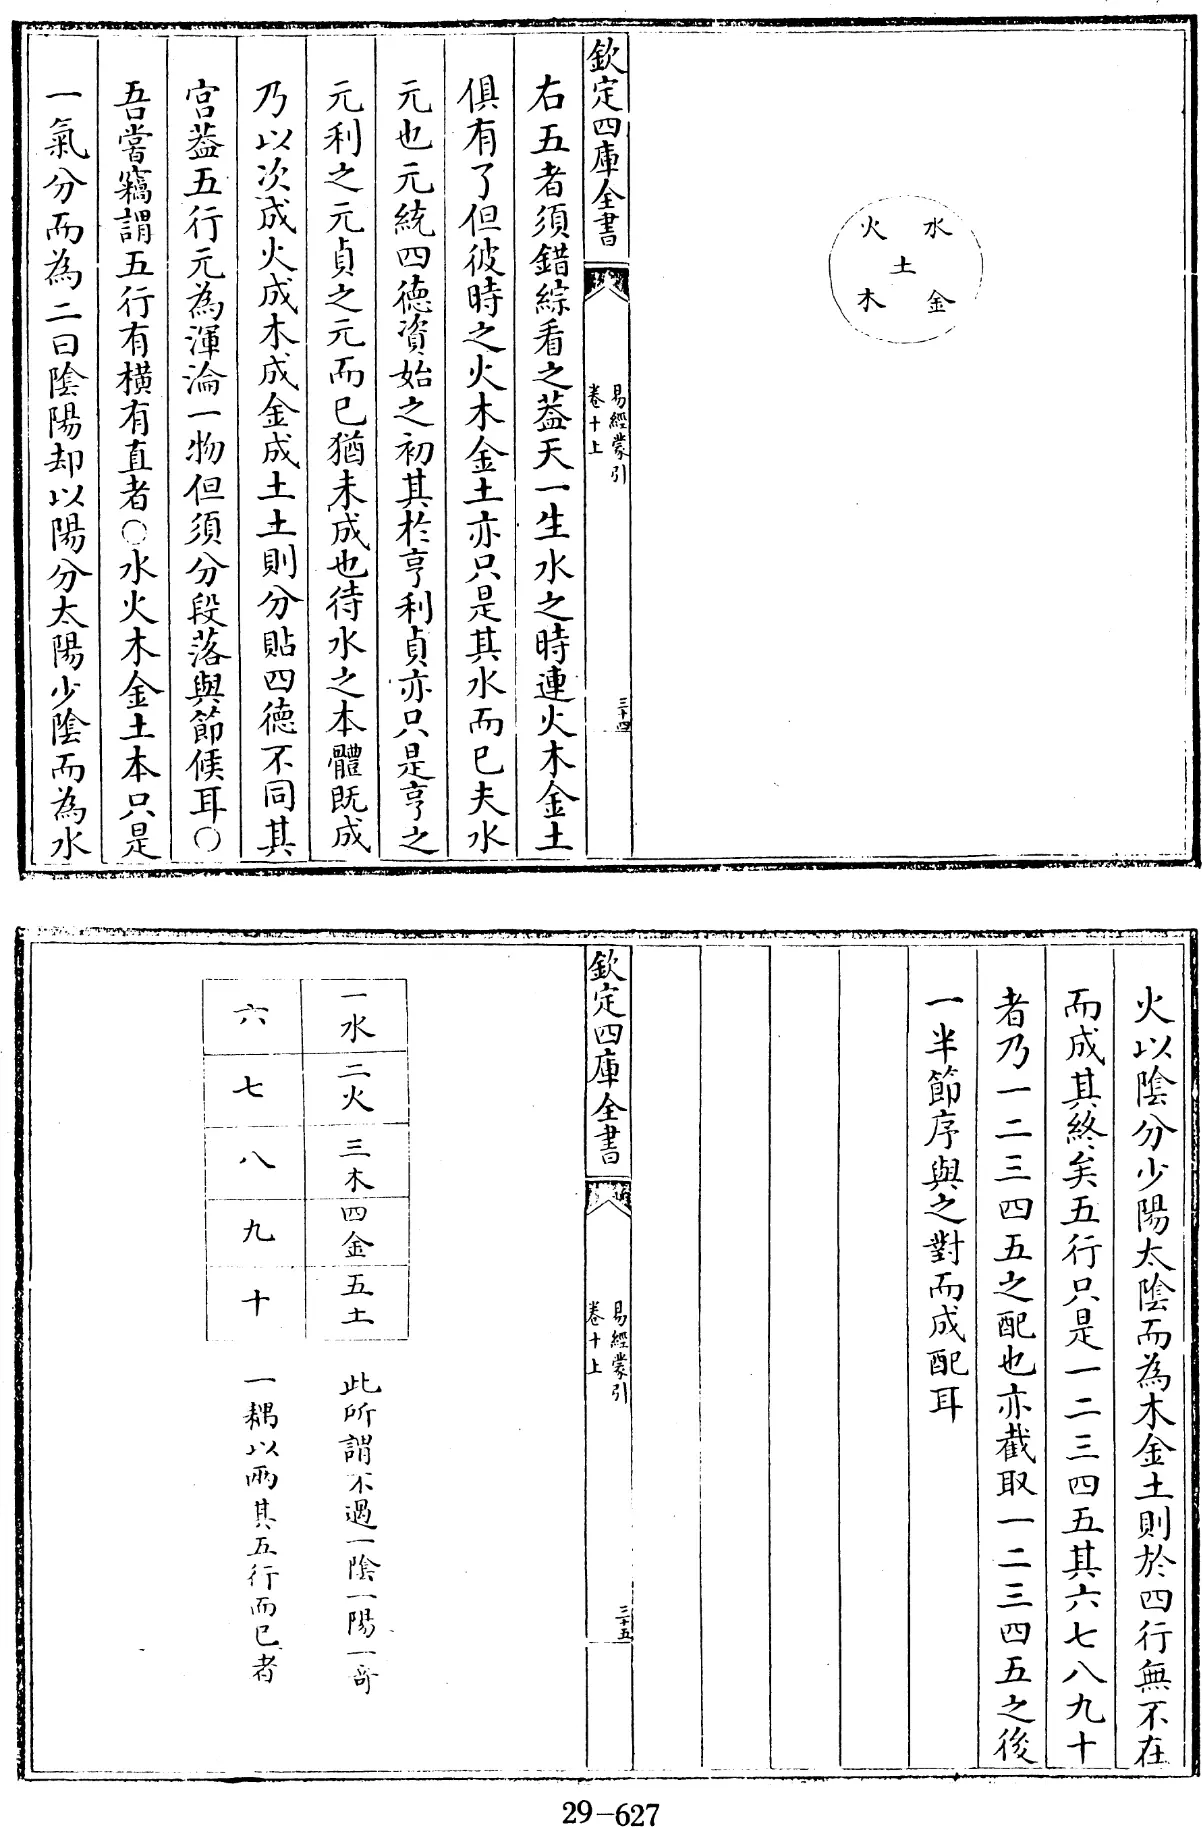 水
火
土
金
木
欽定四庫全書
易經蒙引
卷十上
三十四
右五者須錯綜看之葢天一生水之時連火木金土
俱有了但彼時之火木金土亦只是其水而已夫水
元也元統四德資始之初其於亨利貞亦只是亨之
元利之元貞之元而已猶未成也待水之本體既成
乃以次成火成木成金成土土則分貼四德不同其
宫葢五行元為渾淪一物但須分段落與節候耳〇
吾嘗竊謂五行有横有直者〇水火木金土本只是
一氣分而為二曰陰陽却以陽分太陽少陰而為水
火以陰分少陽太陰而為木金土則於四行無不在
而成其終矣五行只是一二三四五其六七八九十
者乃一二三四五之配也亦截取一二三四五之後
一半節序與之對而成配耳
欽定四庫全書
易經蒙引
卷十上
三十五
一水
二火
三木
四金
五土
六
七
八
九
十
此所謂不過一陰一陽一奇
一耦以兩其五行而已者
29-627